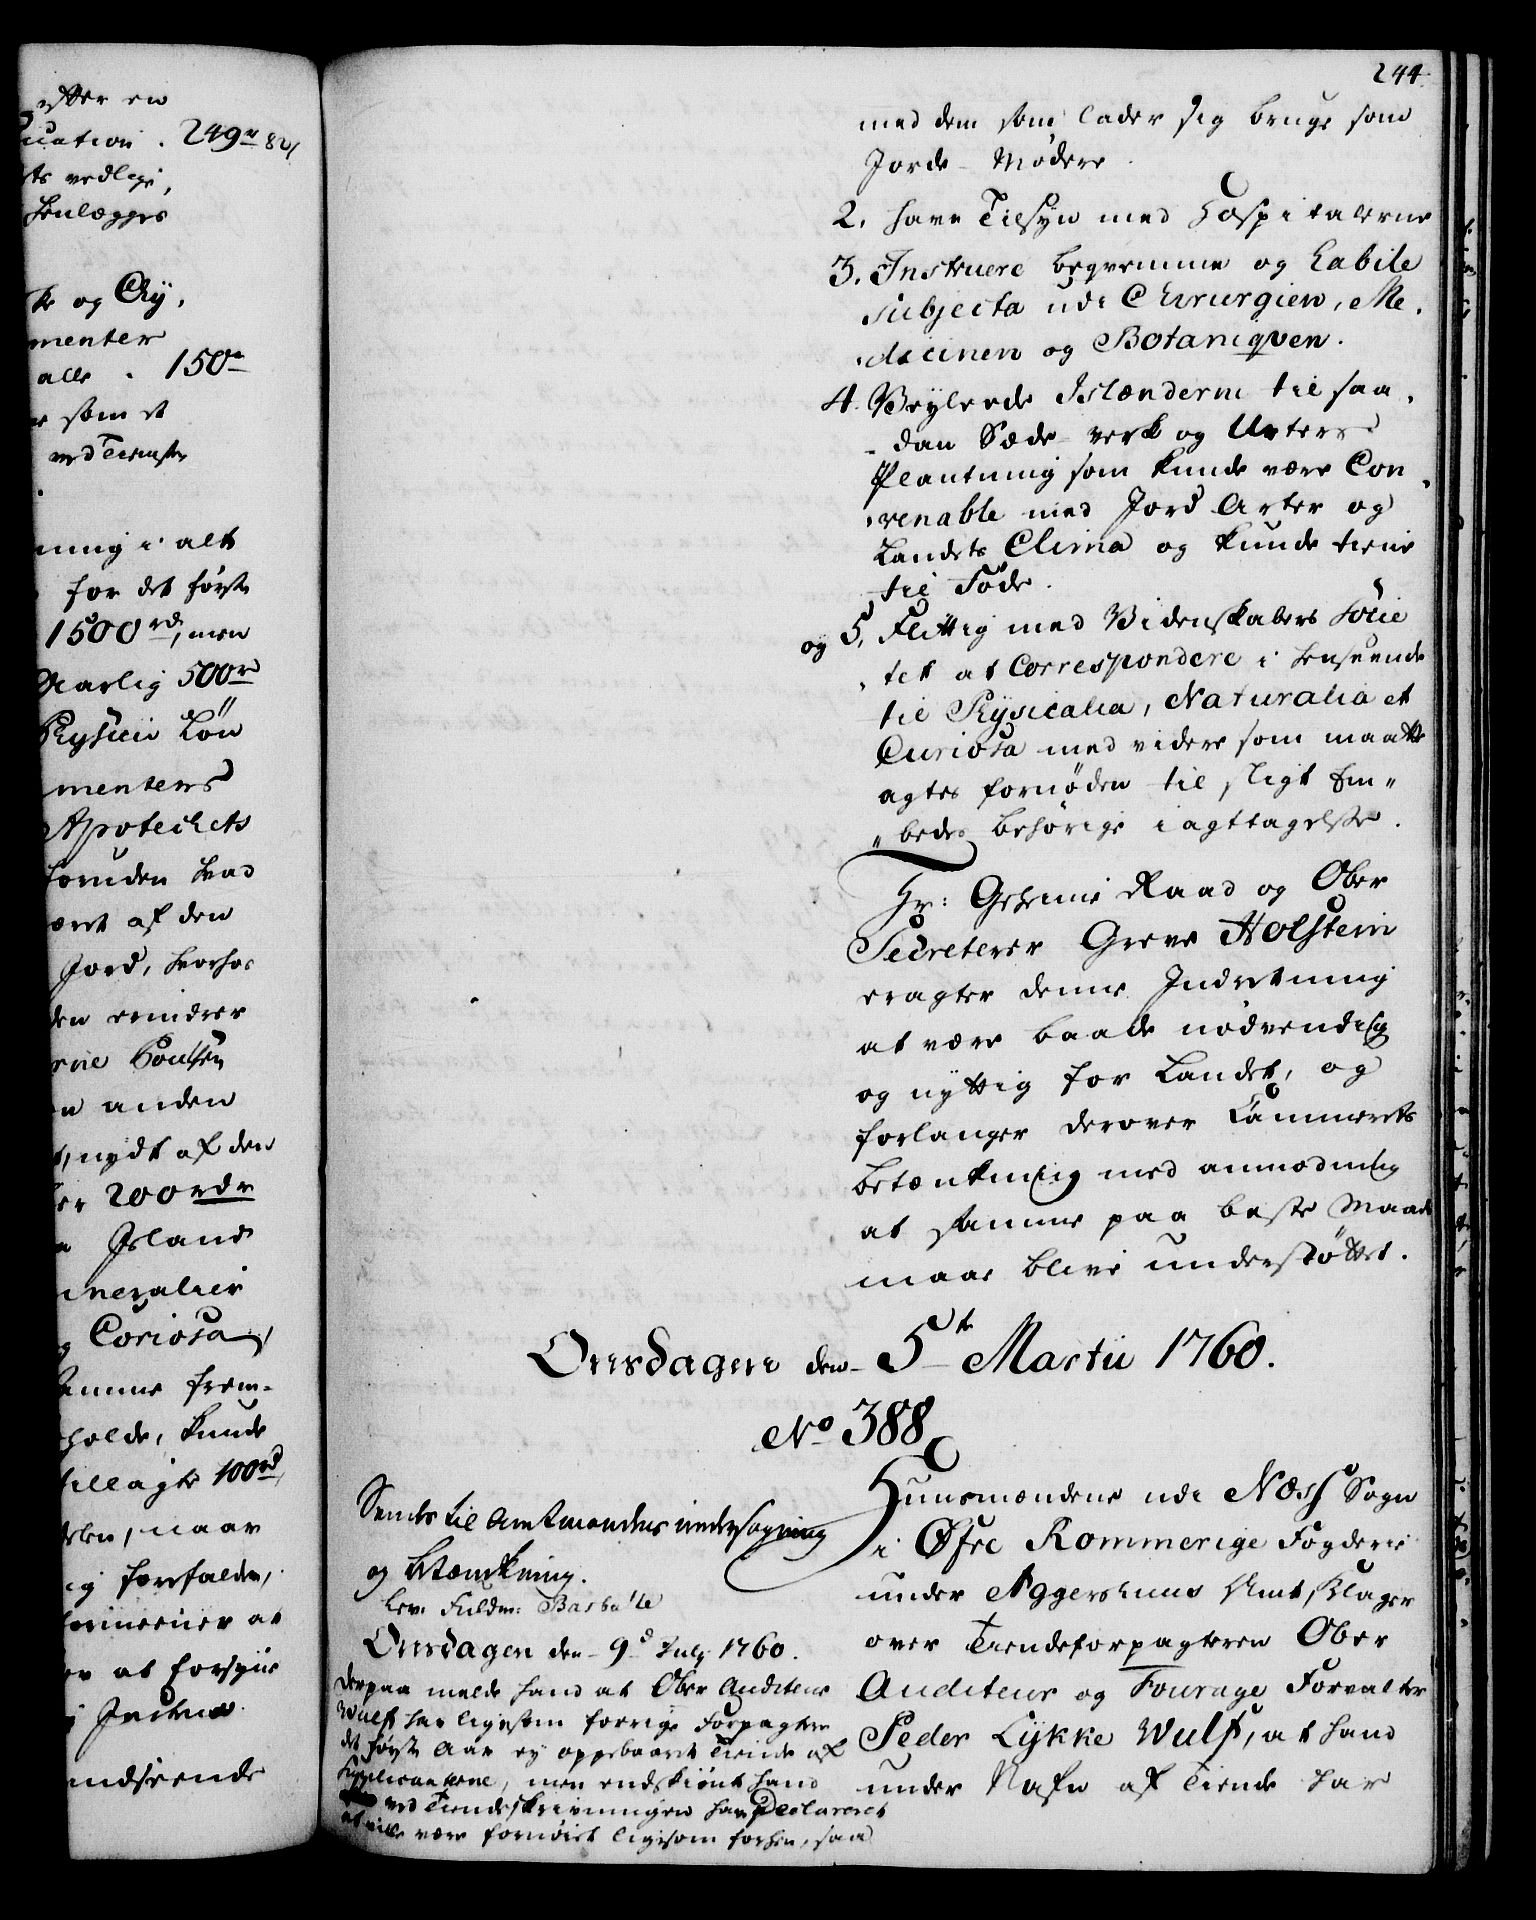 etter en
uation . 249 rd 82
ts vedlige,
henlægges
te og Chy,
menter
alle . 150 rd
som et
ved Tienste
ning i alt
for det første
1500 rd, men
Aarlig 500 rd
Physici Løn
menters
Apotechets
foruden hvad
æret af den
Jord, hvorhos
den erindrer
rne Poulsen
en anden
t, nydt af den
er 200 rdr
Island
ineralier
g Coriosa,
samme frem-
holde, kunde
tillagte 100 rd,
naar
ig forefalder,
at
er at forsyne
ndseende
244.
med dem som lader sig bruge som
Jorde-Mødere.
2. have Tilsyn med Hospitalerne
3. Instruere beqvemme og habile
subjecta udi Chirurgien, Me-
dicinen og Botaniqven.
4. Veylede Islænderne til saa-
dan Sæde-verk og Urters
Plantning som kunde være Con-
venable med Jord Arter og
Landets Clima og kunde tiene
til Føde.
og 5. Flittig med Videnskabers Socie
tet at Correspondere i henseende
til Physicalia, Naturalia et
Curiosa med videre som maatte
agtes fornøden til sligt Em-
bedes behørige iagttagelse.
Hr: Geheime Raad og Ober
Secreterer Greve Holstein
eragter denne Indretning
at være baade nødvendig
og nyttig for Landet, og
forlanger derover Cammerets
betænkning med anmodning
at samme paa beste Maade
maae blive understøttet.
Onsdagen den 5te Martii 1760.
No 388
Sendes til Amtmandens undersøgning
og betænkning.
lev: Fuldm: Barsøille
Onsdagen den 9d July 1760.
Derpaa melde hand at Ober Auditeur
Wulf har ligesom forrige Forpagtere
det første Aar ey oppebaaret Tiende af
Supplicanterne, men endskiønt hand
ved Tiendeskrivningen har Declareret
at ville være fornøiet ligesom forhen, saa
Huusmændene udi Næss Sogn
i Øfre Rommerige Fogderie
under Aggershuus Amt, Klager
over Tiendeforpagteren Ober
Auditeur og Fourage Forvalter
Peder Lykke Wulf, at hand
under Nafn af Tiende har